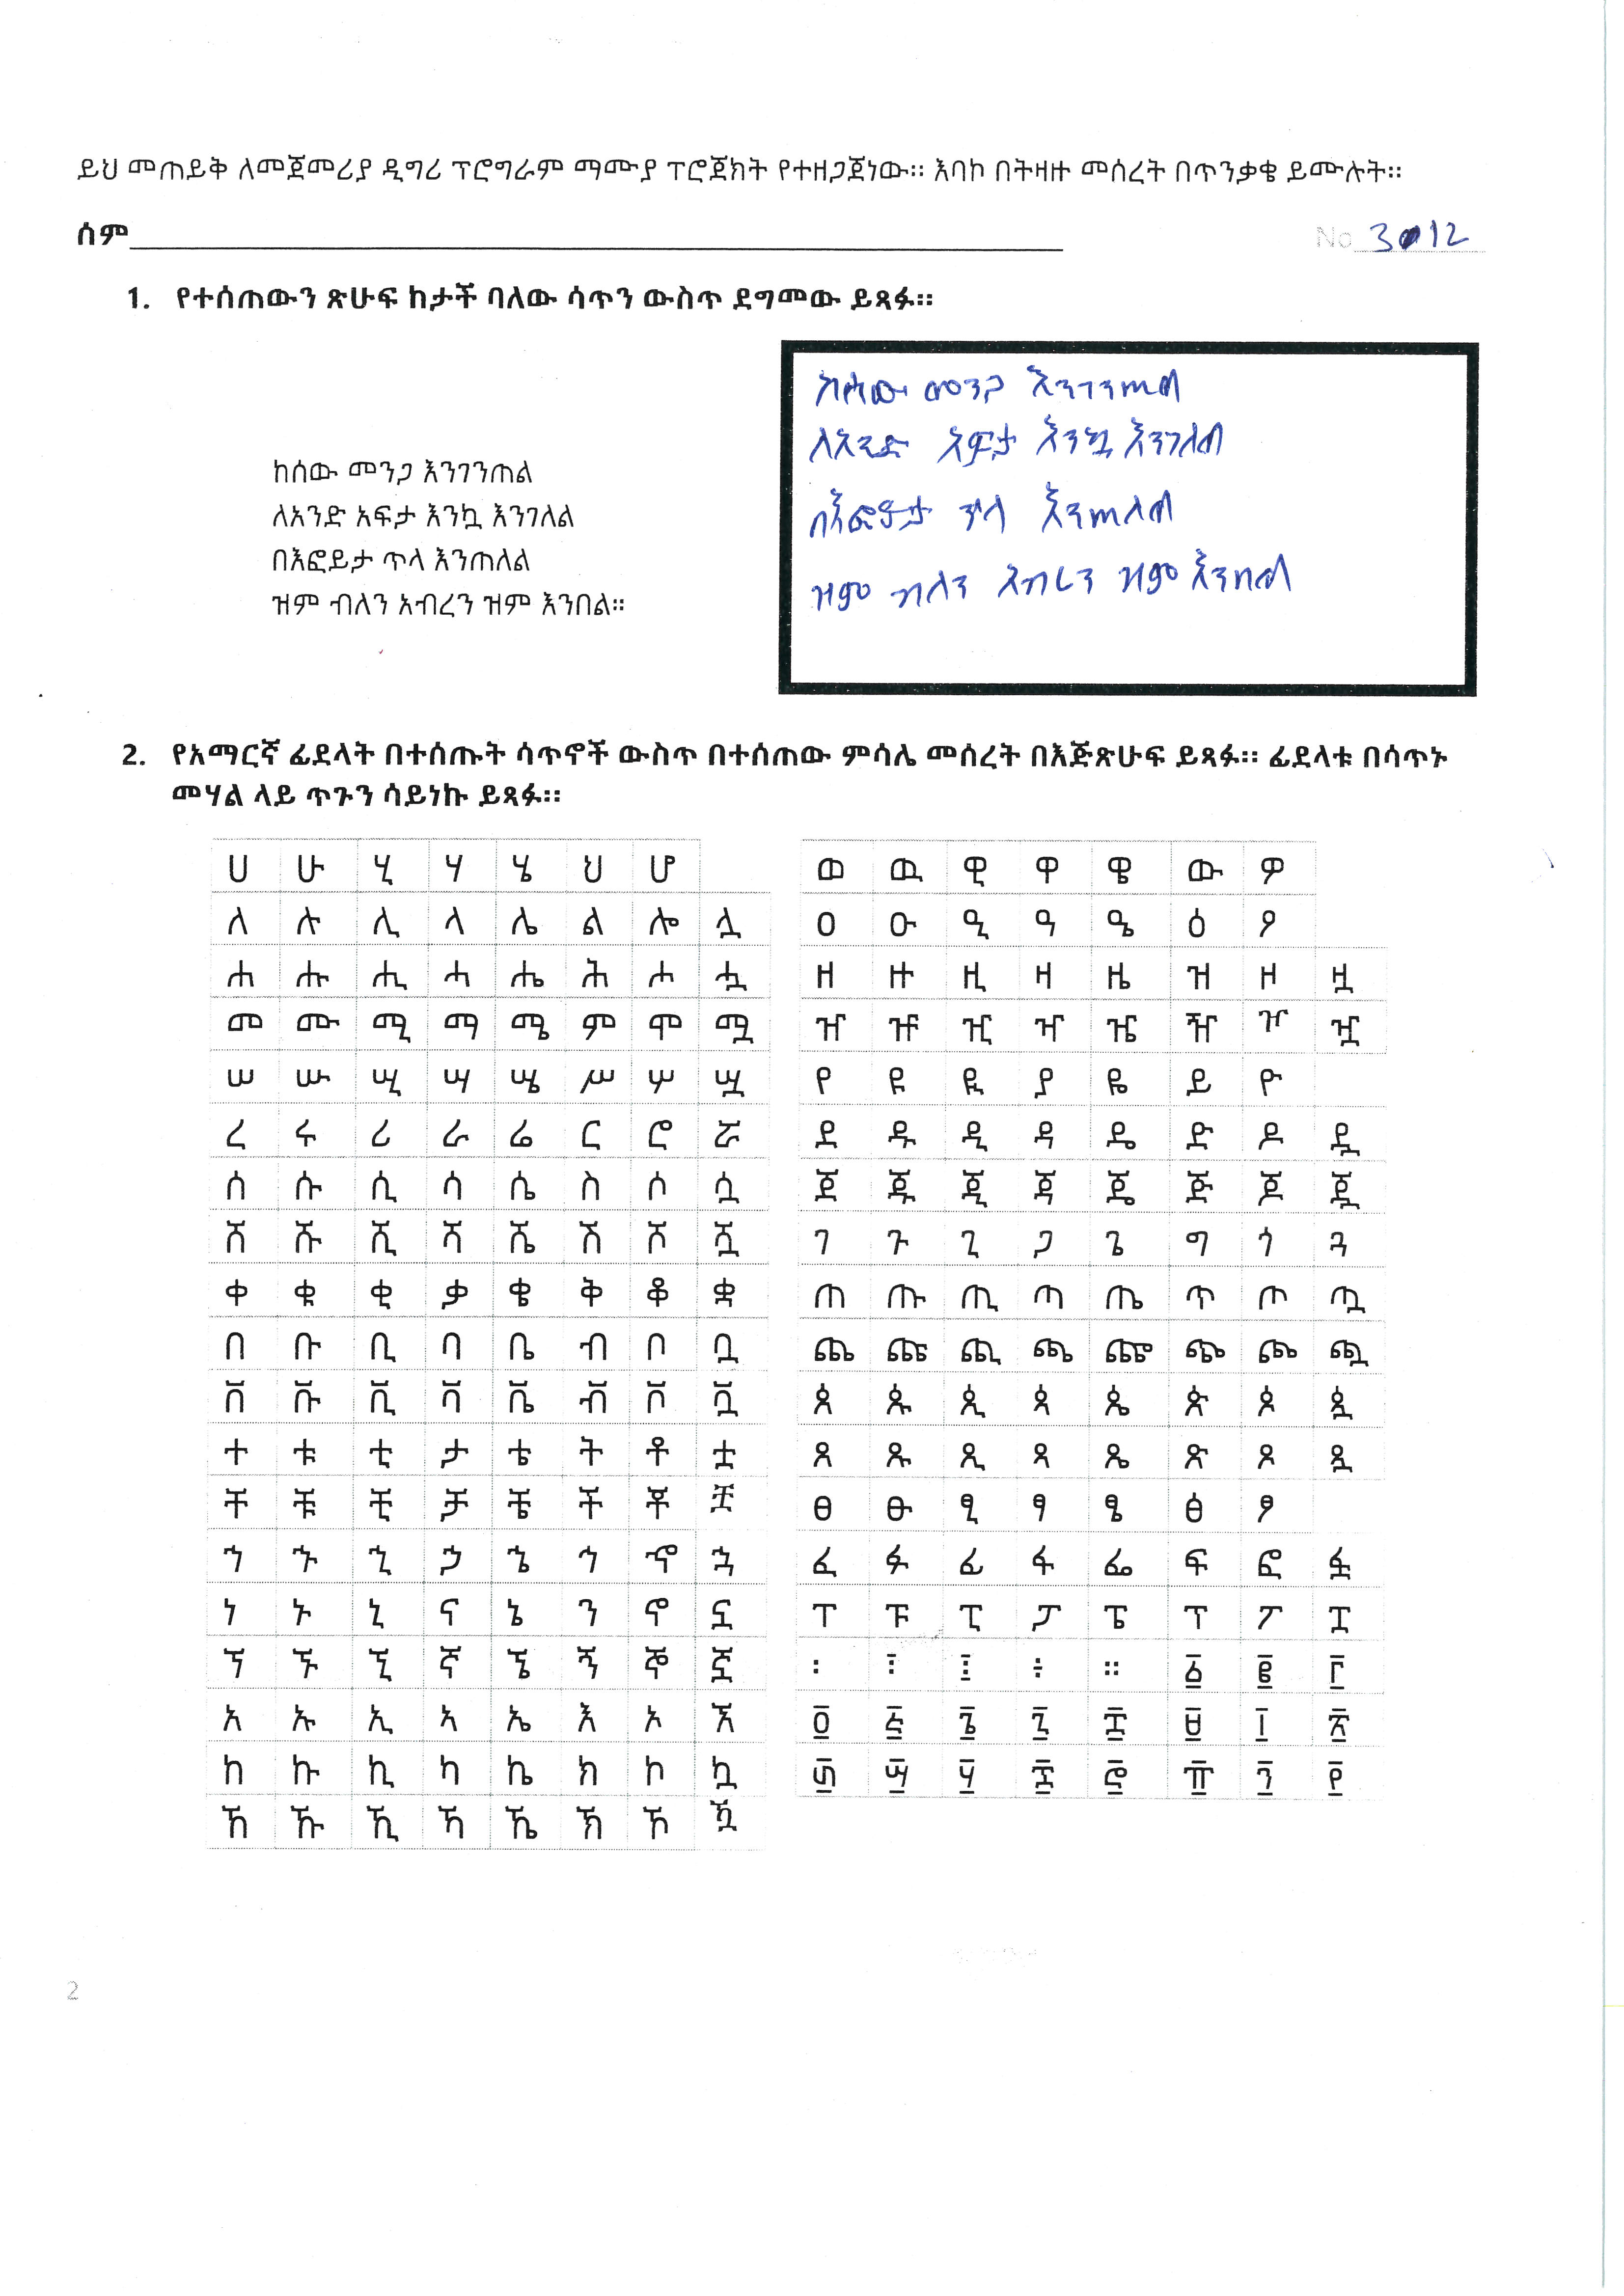 ይህ መጠይቅ ለመጀመሪያ ዲግሪ ፕሮግራም ማሙያ ፕሮጀክት የተዘጋጀነው፡፡ እባኮ በትዛዙ መሰረት በጥንቃቄ ይሙሉት፡፡
ሰም
No 3012
1. የተሰጠውን ጽሁፍ ከታች ባለው ሳጥን ውስጥ ደግመው ይጻፉ፡፡
ከሰው መንጋ እንገንጠል
ለአንድ አፍታ እንኳ እንገለል
በእፎይታ ጥላ እንጠለል
ዝም ብለን አብረን ዝም እንበል።
ከሰው መንጋ እንገንጠል
ለአንድ አፍታ እንኳ እንገለል
በእፎይታ ጥላ እንጠለል
ዝም ብለን አብረን ዝም እንበል
2. የአማርኛ ፊደላት በተሰጡት ሳጥኖች ውስጥ በተሰጠው ምሳሌ መሰረት በእጅጽሁፍ ይጻፉ፡፡ ፊደላቱ በሳጥኑ
መሃል ላይ ጥጉን ሳይነኩ ይጻፉ፡፡
ሀ ሁ ሂ ሃ ሄ ህ ሆ
ለ ሉ ሊ ላ ሌ ል ሎ ሏ
ሐ ሑ ሒ ሓ ሔ ሕ ሖ ሗ
መ ሙ ሚ ማ ሜ ም ሞ ሟ
ሠ ሡ ሢ ሣ ሤ ሥ ሦ ሧ
ረ ሩ ሪ ራ ሬ ር ሮ ሯ
ሰ ሱ ሲ ሳ ሴ ስ ሶ ሷ
ሸ ሹ ሺ ሻ ሼ ሽ ሾ ሿ
ቀ ቁ ቂ ቃ ቄ ቅ ቆ ቋ
በ ቡ ቢ ባ ቤ ብ ቦ ቧ
ቨ ቩ ቪ ቫ ቬ ቭ ቮ ቯ
ተ ቱ ቲ ታ ቴ ት ቶ ቷ
ቸ ቹ ቺ ቻ ቼ ች ቾ ቿ
ኀ ኁ ኂ ኃ ኄ ኅ ኆ ኋ
ነ ኑ ኒ ና ኔ ን ኖ ኗ
ኘ ኙ ኚ ኛ ኜ ኝ ኞ ኟ
አ ኡ ኢ ኣ ኤ እ ኦ ኧ
ከ ኩ ኪ ካ ኬ ክ ኮ ኳ
ኸ ኹ ኺ ኻ ኼ ኽ ኾ ዃ
ወ ዉ ዊ ዋ ዌ ው ዎ
ዐ ዑ ዒ ዓ ዔ ዕ ዖ
ዘ ዙ ዚ ዛ ዜ ዝ ዞ ዟ
ዠ ዡ ዢ ዣ ዤ ዥ ዦ ዧ
የ ዩ ዪ ያ ዬ ይ ዮ
ደ ዱ ዲ ዳ ዴ ድ ዶ ዷ
ጀ ጁ ጂ ጃ ጄ ጅ ጆ ጇ
ገ ጉ ጊ ጋ ጌ ግ ጎ ጓ
ጠ ጡ ጢ ጣ ጤ ጥ ጦ ጧ
ጨ ጩ ጪ ጫ ጬ ጭ ጮ ጯ
ጰ ጱ ጲ ጳ ጴ ጵ ጶ ጷ
ጸ ጹ ጺ ጻ ጼ ጽ ጾ ጿ
ፀ ፁ ፂ ፃ ፄ ፅ ፆ
ፈ ፉ ፊ ፋ ፌ ፍ ፎ ፏ
ፐ ፑ ፒ ፓ ፔ ፕ ፖ ፗ
፡ ፣ ፤ ÷ ። ፩ ፪ ፫
፬ ፭ ፮ ፯ ፰ ፱ ፲ ፳
፴ ፵ ፶ ፷ ፸ ፹ ፺ ፻
2